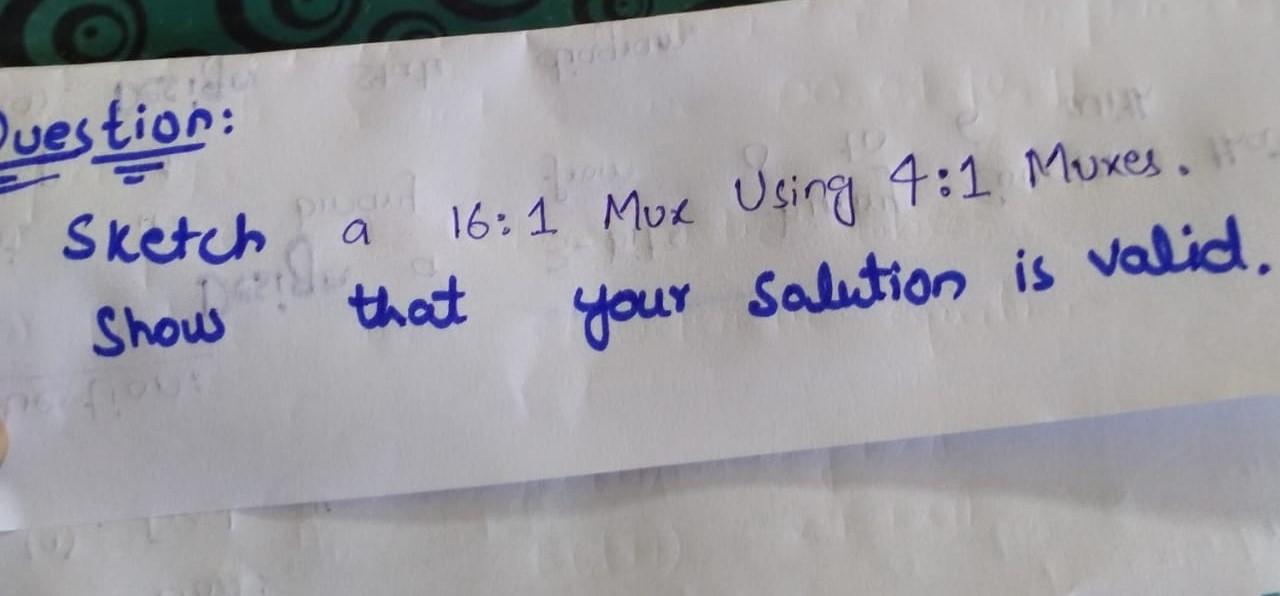 Question:
Sketch a 16:1 Mux Using 4:1 Muxes.
Show that your Salution is valid.